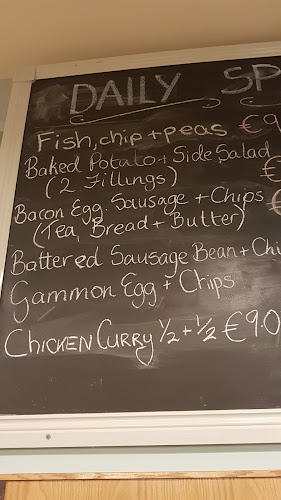 DAILY SP
Fish, chip + peas €9
Baked Potato + Side Salad
(2 Fillings) €
Bacon Egg. Sausage + Chips
(Tea, Bread + Butter) €
Battered Sausage Bean + Chi
Gammon Egg + Chips
CHICKEN CURRY 1/2 + 1/2 €9.0